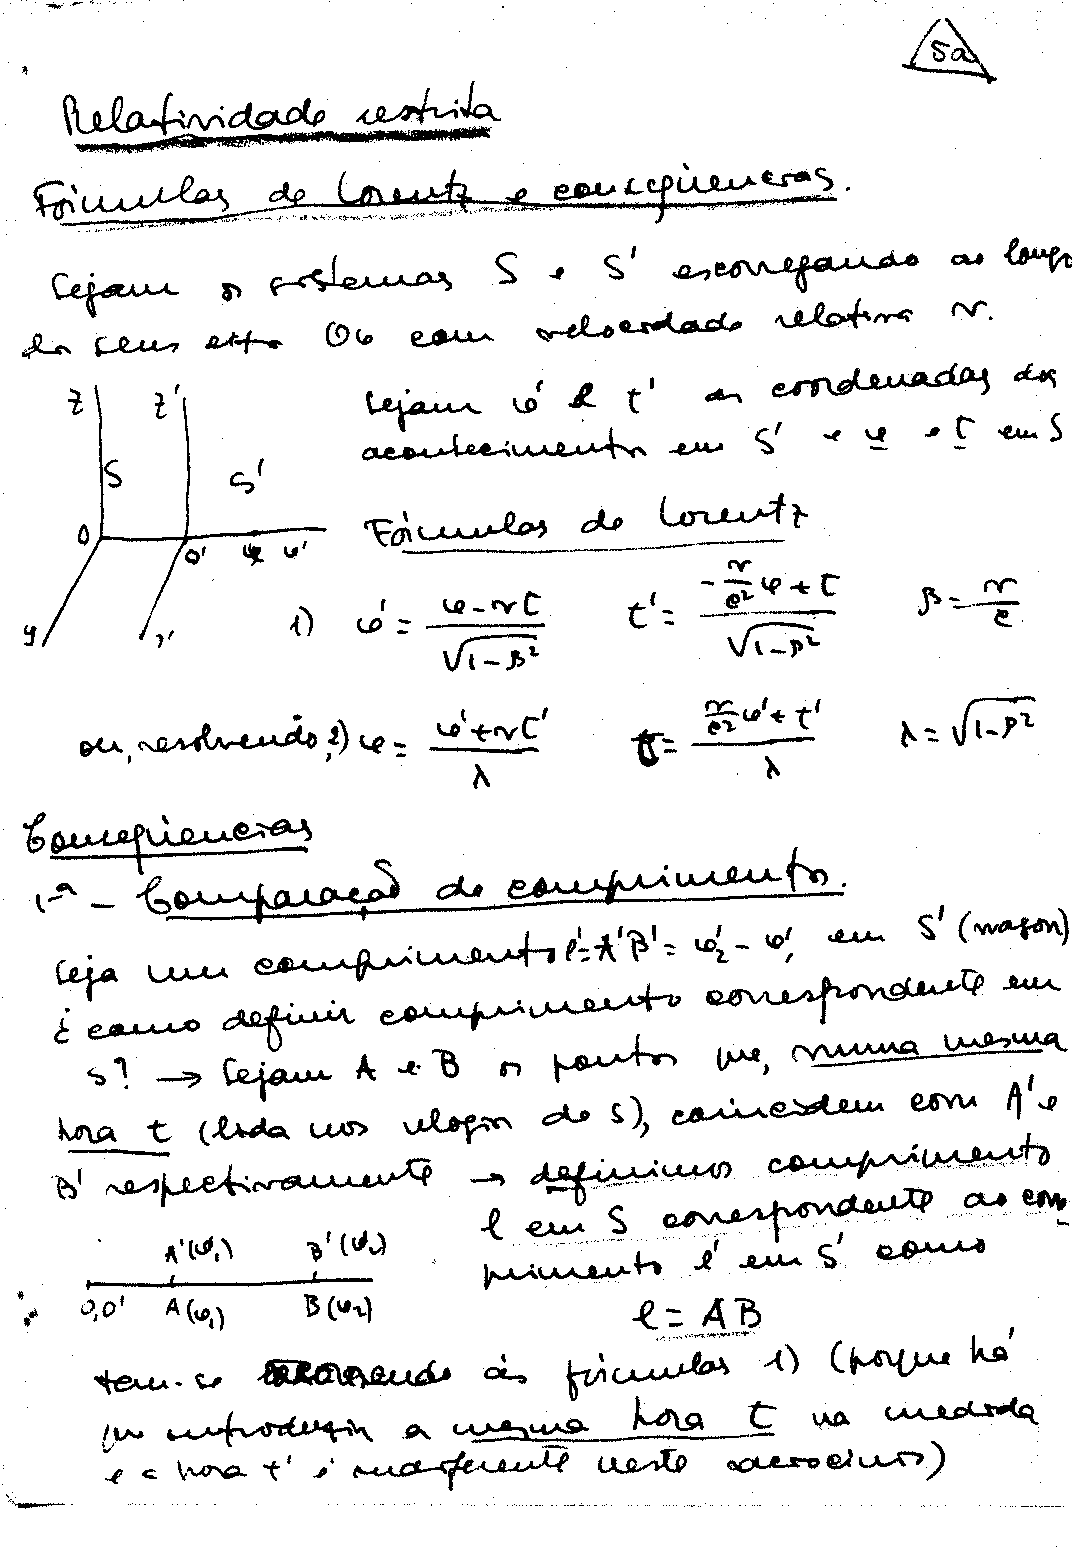 5a
Relatividade restrita
Fórmulas de Lorentz e conseqüencias.
Sejam os sistemas S e S' escorregando ao longo
dos seus eixos Ox com velocidade relativa v.
Sejam x' e t' as coordenadas dos
acontecimentos em S' e x e t em S
z z'
S S'
O O' x x'
y y'
Fórmulas de Lorentz
1) x' = (x - vt)/√(1-β²) t' = (-v/c² x + t)/√(1-β²) β = v/c
ou, resolvendo, 2) x = (x' + vt')/λ t = (v/c² x' + t')/λ λ = √(1-β²)
Conseqüencias
1ª - Comparação de comprimentos.
Seja um comprimento l' = A'B' = x'₂ - x'₁ em S' (vagon)
¿ como definir comprimento correspondente em
S? → Sejam A e B os pontos que, numa mesma
hora t (lida nos relogios de S), coincidem com A' e
B' respectivamente → definimos comprimento
l em S correspondente ao com
primento l' em S' como
A'(x'₁) B'(x'₂)
O,O' A(x₁) B(x₂)
l = AB
tem-se às fórmulas 1) (porque há
que introduzir a mesma hora t na medida
e a hora t' é indiferente neste raciocinio)